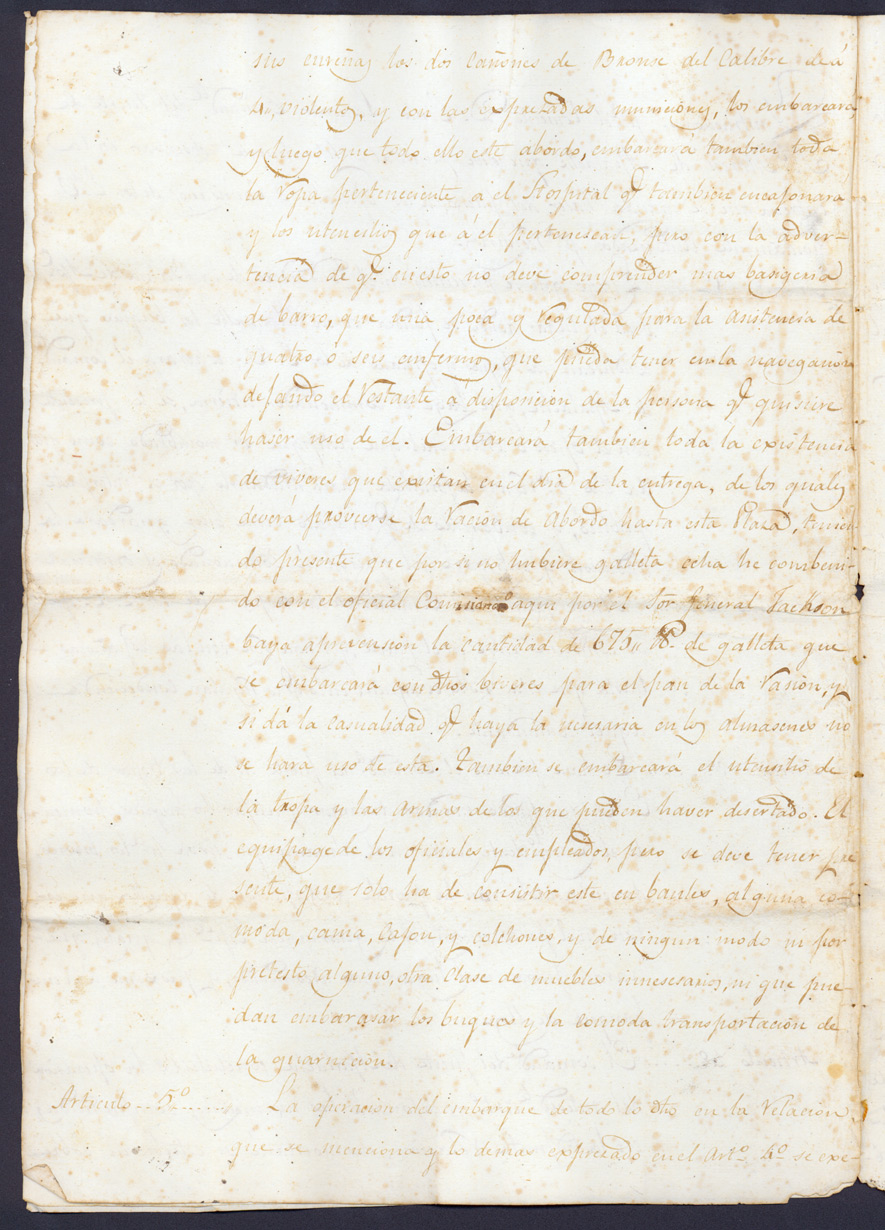 sus cureñas los dos cañones de Bronse del Calibre de á
4,, violentos, y con las expresadas municiones, los embarcará
y luego que todo ello este abordo, embarcará tambien toda
la ropa perteneciente á el Hospital q.e tambien encajonará
y los utencilios que á el pertenescan, pero con la adver-
tencia de q.e en esto no deve comprender mas basigeria
de barro, que una poca y regulada para la asistencia de
quatro o seis enfermos, que pueda tener en la navegacion
dejando el restante a disposicion de la persona q.e quisiere
haser uso de el. Embarcará tambien toda la existencia
de viveres que existan en el dia de la entrega, de los quales
deverá proveerse la racion de Abordo hasta esta Plaza, tenien-
do presente que por si no hubiere galleta echa he combeni-
do con el oficial Comisionado aqui por el Sor. General Jackson
baya aprevension la cantidad de 675,, rs. de galleta que
se embarcará con dhos biveres para el pan de la rasion, y
si dá la casualidad q.e haya la nesesaria en los almasenes no
se hara uso de esta. Tambien se embarcará el utensilio de
la tropa y las armas de los que pueden haver desertado. El
equipage de los oficiales y empleados, pero se deve tener pre
sente, que solo ha de consistir este en baules, alguna co-
moda, cama, cajon, y colchones, y de ningun modo ni por
pretesto alguno, otra clase de muebles innesesarios, ni que pue-
dan embarasar los buques y la comoda transportacion de
la guarnicion.
Articulo .. 5.º ...... La operacion del embarque de todo lo dho en la relacion
que se menciona y lo demas expresado en el Art.º 4.º se exe-